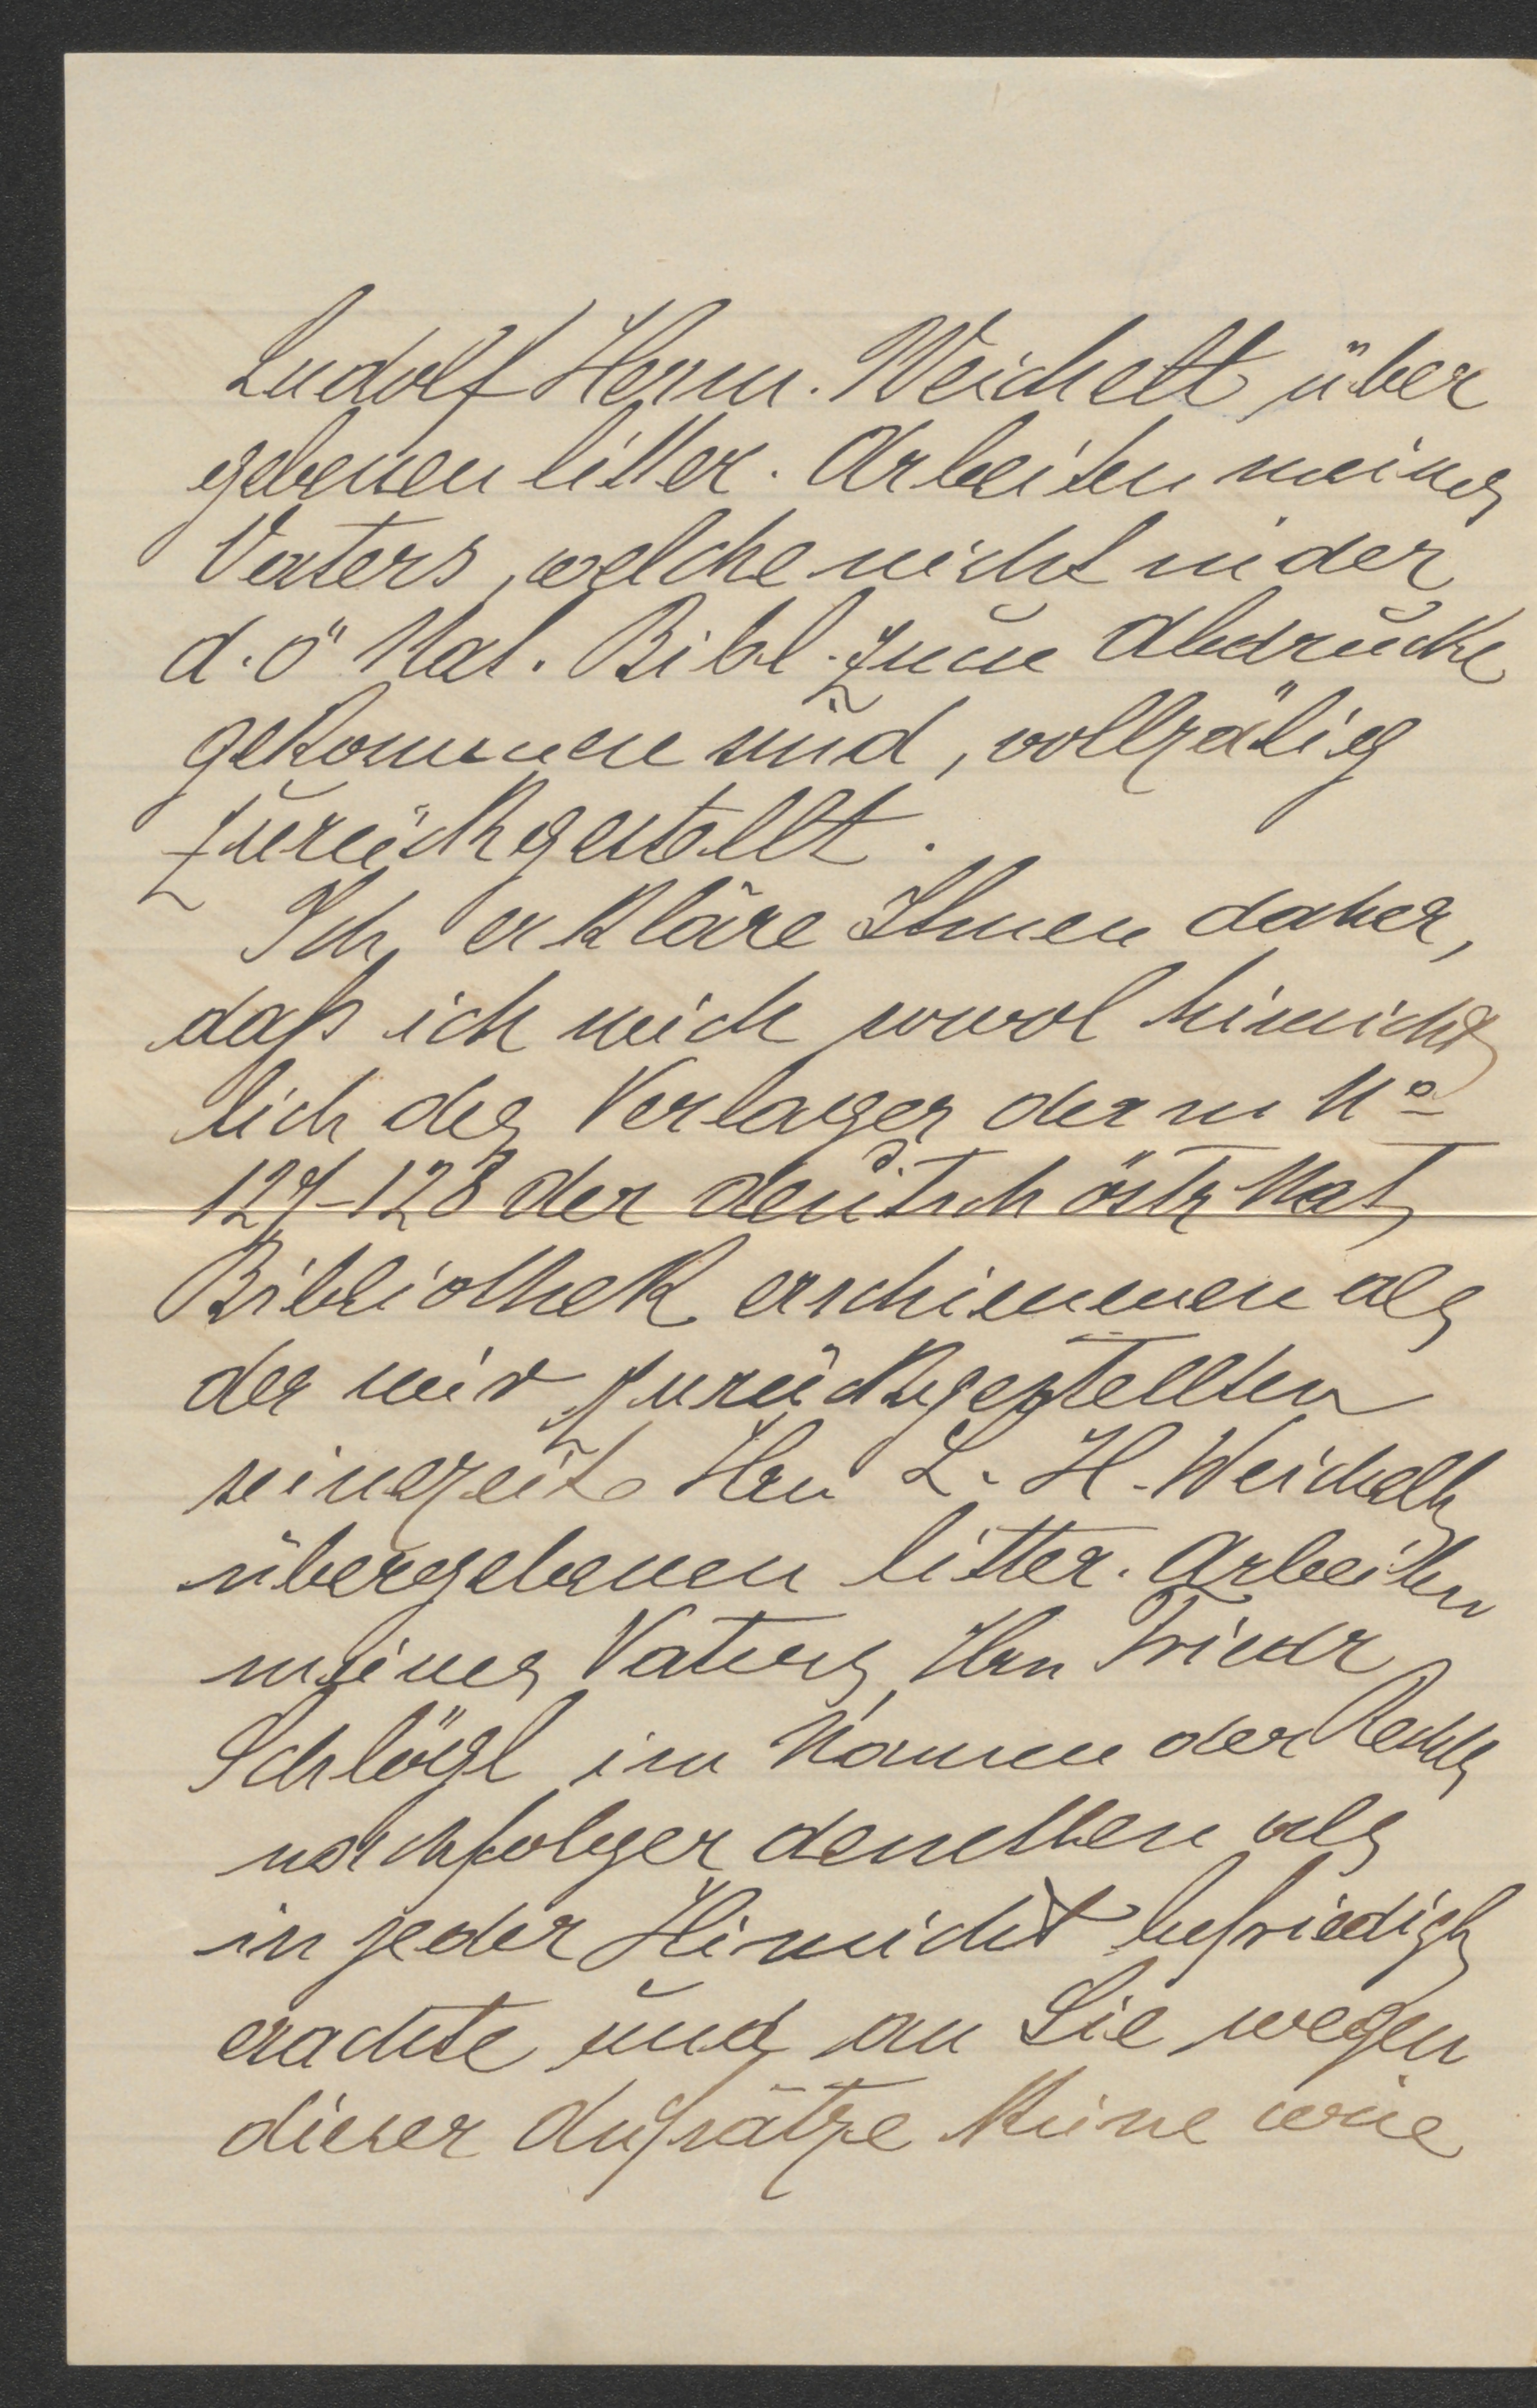 Ludolf Herm. Weichelt über
gebenen litter. Arbeiten meines
Vaters, welche nicht in der
d. ö Nat. Bibl. zum Abdrucke
gekommen sind, vollzälig
zurückgestellt.
Ich erkläre Ihnen daher,
daß ich mich sowol hinsicht
lich des Verlages der in No
127–128 der deutsch östr Nat
Bibliothek erschienenen als
der mir zurückgestellten
seinerzeit Hrn L. H. Weichelt
übergebenen litter. Arbeiten
meines Vaters Hrn Friedr
Schlögl im Namen der Rechts
nachfolger desselben als
in jeder Hinsicht befriedigt
erachte und an Sie wegen
dieser Aufsätze keine wie